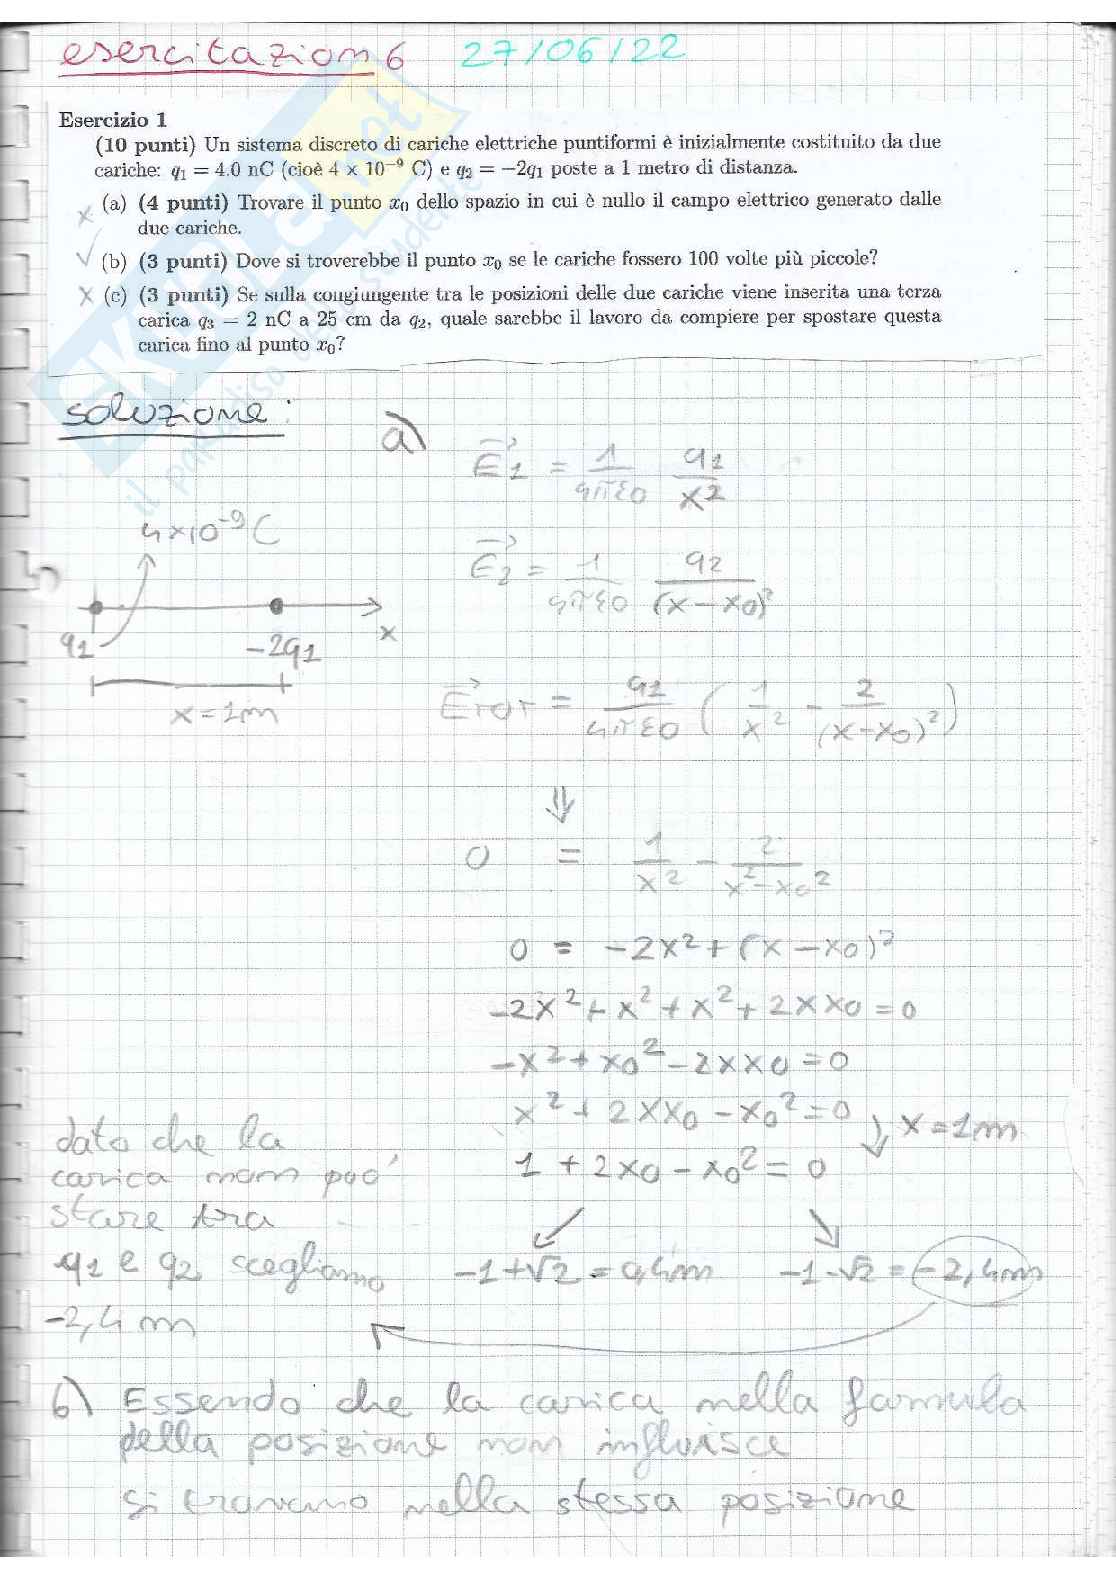 esercitazioni 6 27/06/22
Esercizio 1
(10 punti) Un sistema discreto di cariche elettriche puntiformi è inizialmente costituito da due
cariche: q₁ = 4.0 nC (cioè 4 × 10⁻⁹ C) e q₂ = −2q₁ poste a 1 metro di distanza.
x (a) (4 punti) Trovare il punto x₀ dello spazio in cui è nullo il campo elettrico generato dalle
due cariche.
✓ (b) (3 punti) Dove si troverebbe il punto x₀ se le cariche fossero 100 volte più piccole?
x (c) (3 punti) Se sulla congiungente tra le posizioni delle due cariche viene inserita una terza
carica q₃ = 2 nC a 25 cm da q₂, quale sarebbe il lavoro da compiere per spostare questa
carica fino al punto x₀?
SKUOLA.net
il paradiso dello studente
soluzione:
a)
E⃗1 = 1/4πε0 q1/x²
4×10⁻⁹ C
E⃗2 = 1/4πε0 q2/(x−x0)²
q1 −2q1 x
x = 1m
E⃗TOT = q1/4πε0 (1/x² − 2/(x−x0)²)
⇓
0 = 1/x² − 2/x²−x0²
0 = −2x² + (x−x0)²
−2x² + x² + x² + 2xx0 = 0
−x² + x0² − 2xx0 = 0
x² + 2xx0 − x0² = 0 ↓ x = 1m
1 + 2x0 − x0² = 0
dato che la
carica non può
stare tra
q1 e q2 scegliamo
−2,4 m
−1+√2 = 0,4m −1−√2 = −2,4m
b) Essendo che la carica nella formula
della posizione non influisce
si trovano nella stessa posizione